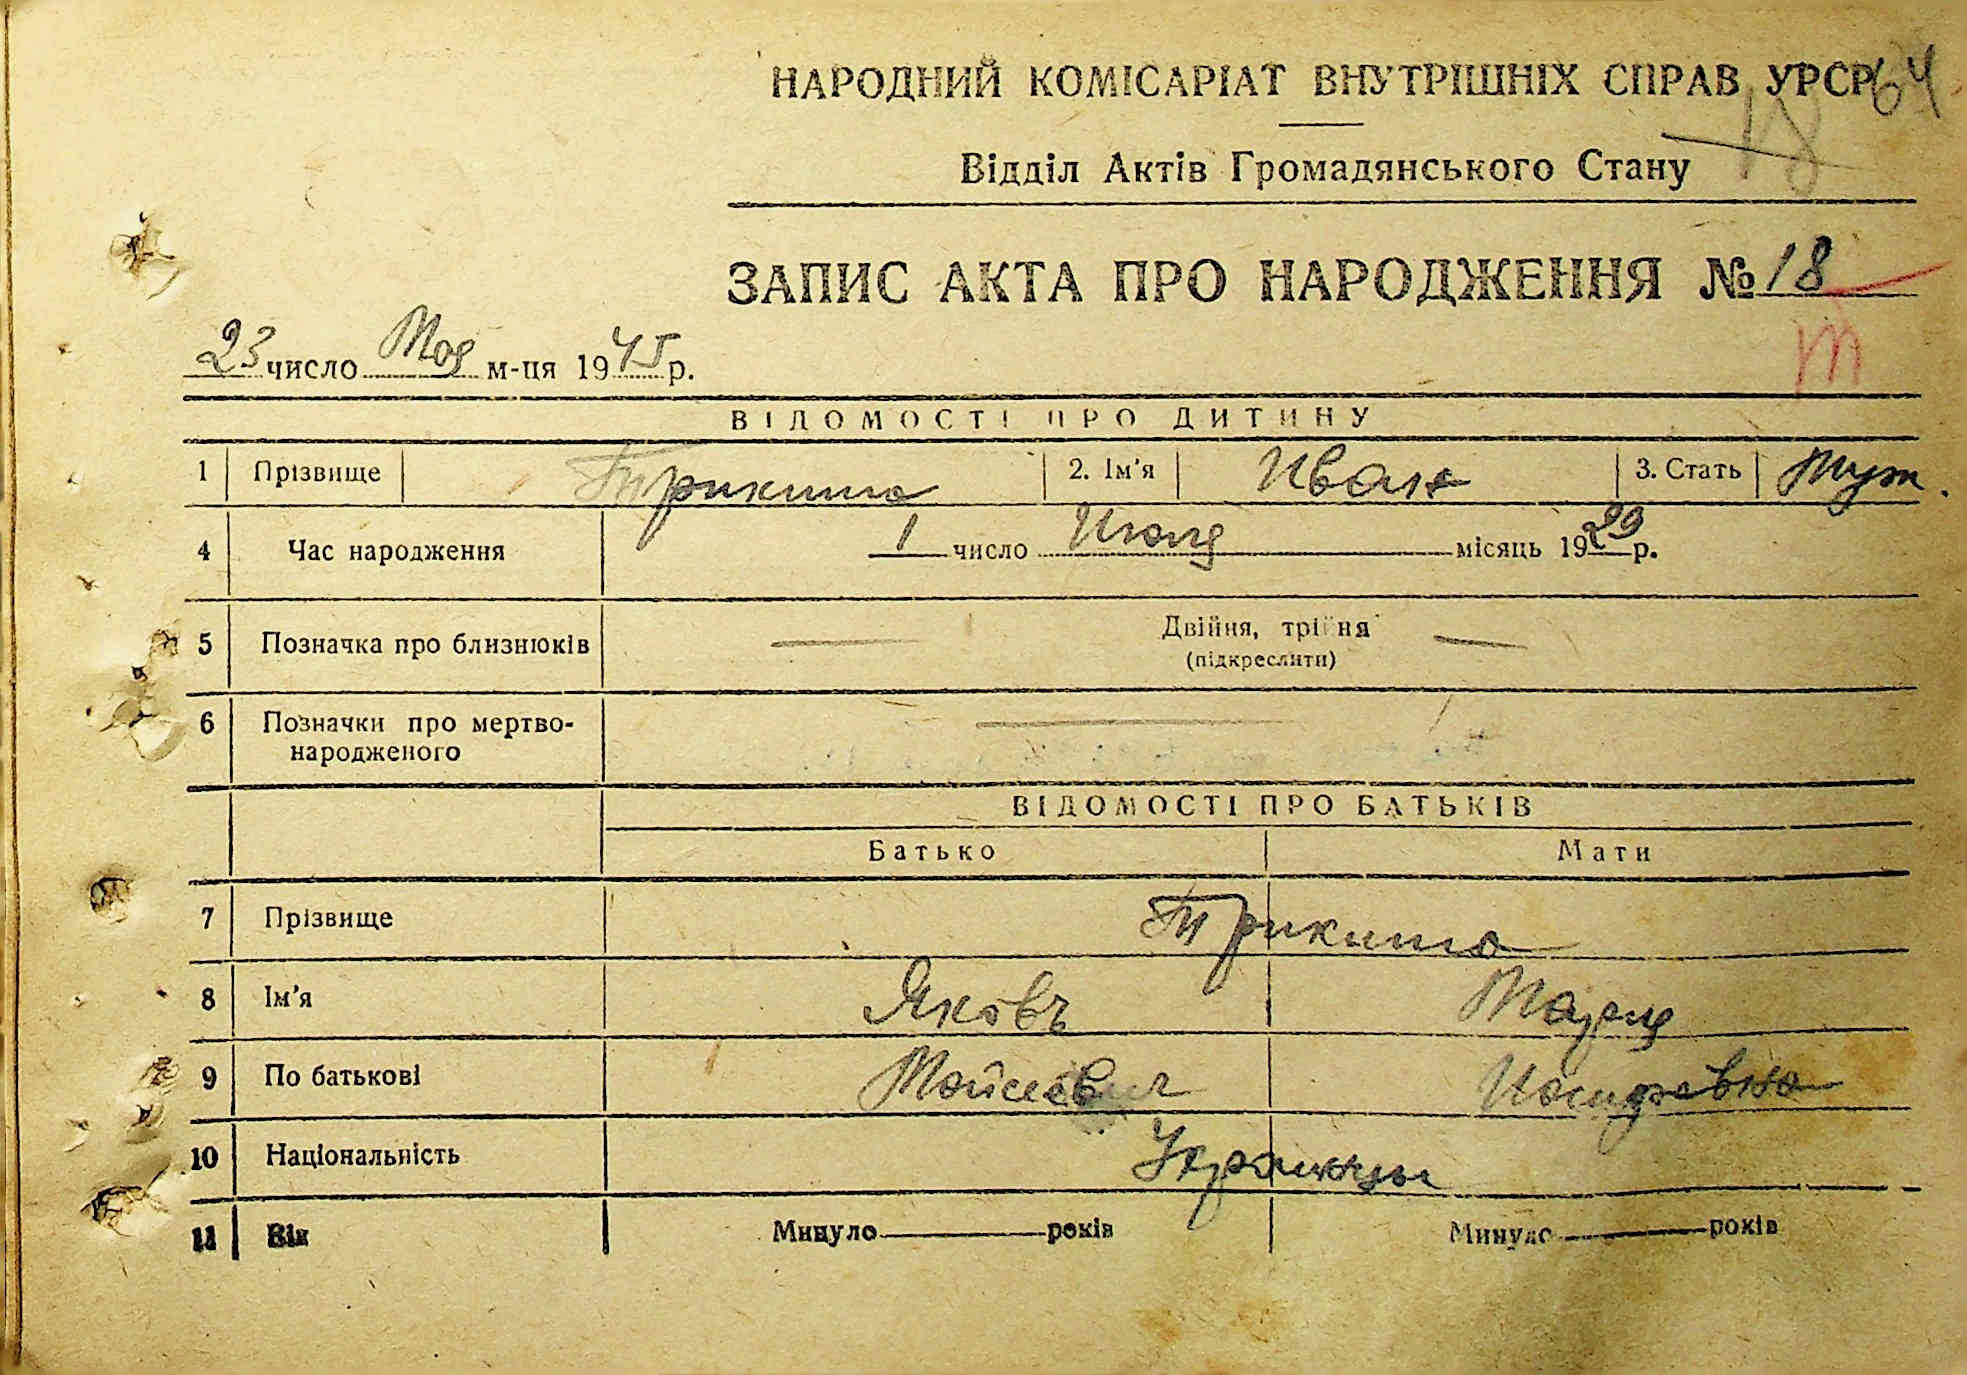 НАРОДНИЙ КОМІСАРІАТ ВНУТРІШНІХ СПРАВ УРСР 64
18
Відділ Актів Громадянського Стану
ЗАПИС АКТА ПРО НАРОДЖЕННЯ №18
23 число Мая м-ця 1945 р.
ВІДОМОСТІ ПРО ДИТИНУ
1 Прізвище Трикиша 2. Ім'я Иван 3. Стать Муж.
4 Час народження 1 число Июля місяць 1929 р.
5 Позначка про близнюків — Двійня, трійня —
(підкреслити)
6 Позначки про мертво-
народженого —
ВІДОМОСТІ ПРО БАТЬКІВ
Батько Мати
7 Прізвище Трикиша
8 Ім'я Яковъ Мария
9 По батькові Мойсеевич Иосифовна
10 Національність Украинцы
11 Вік Минуло років Минуло років